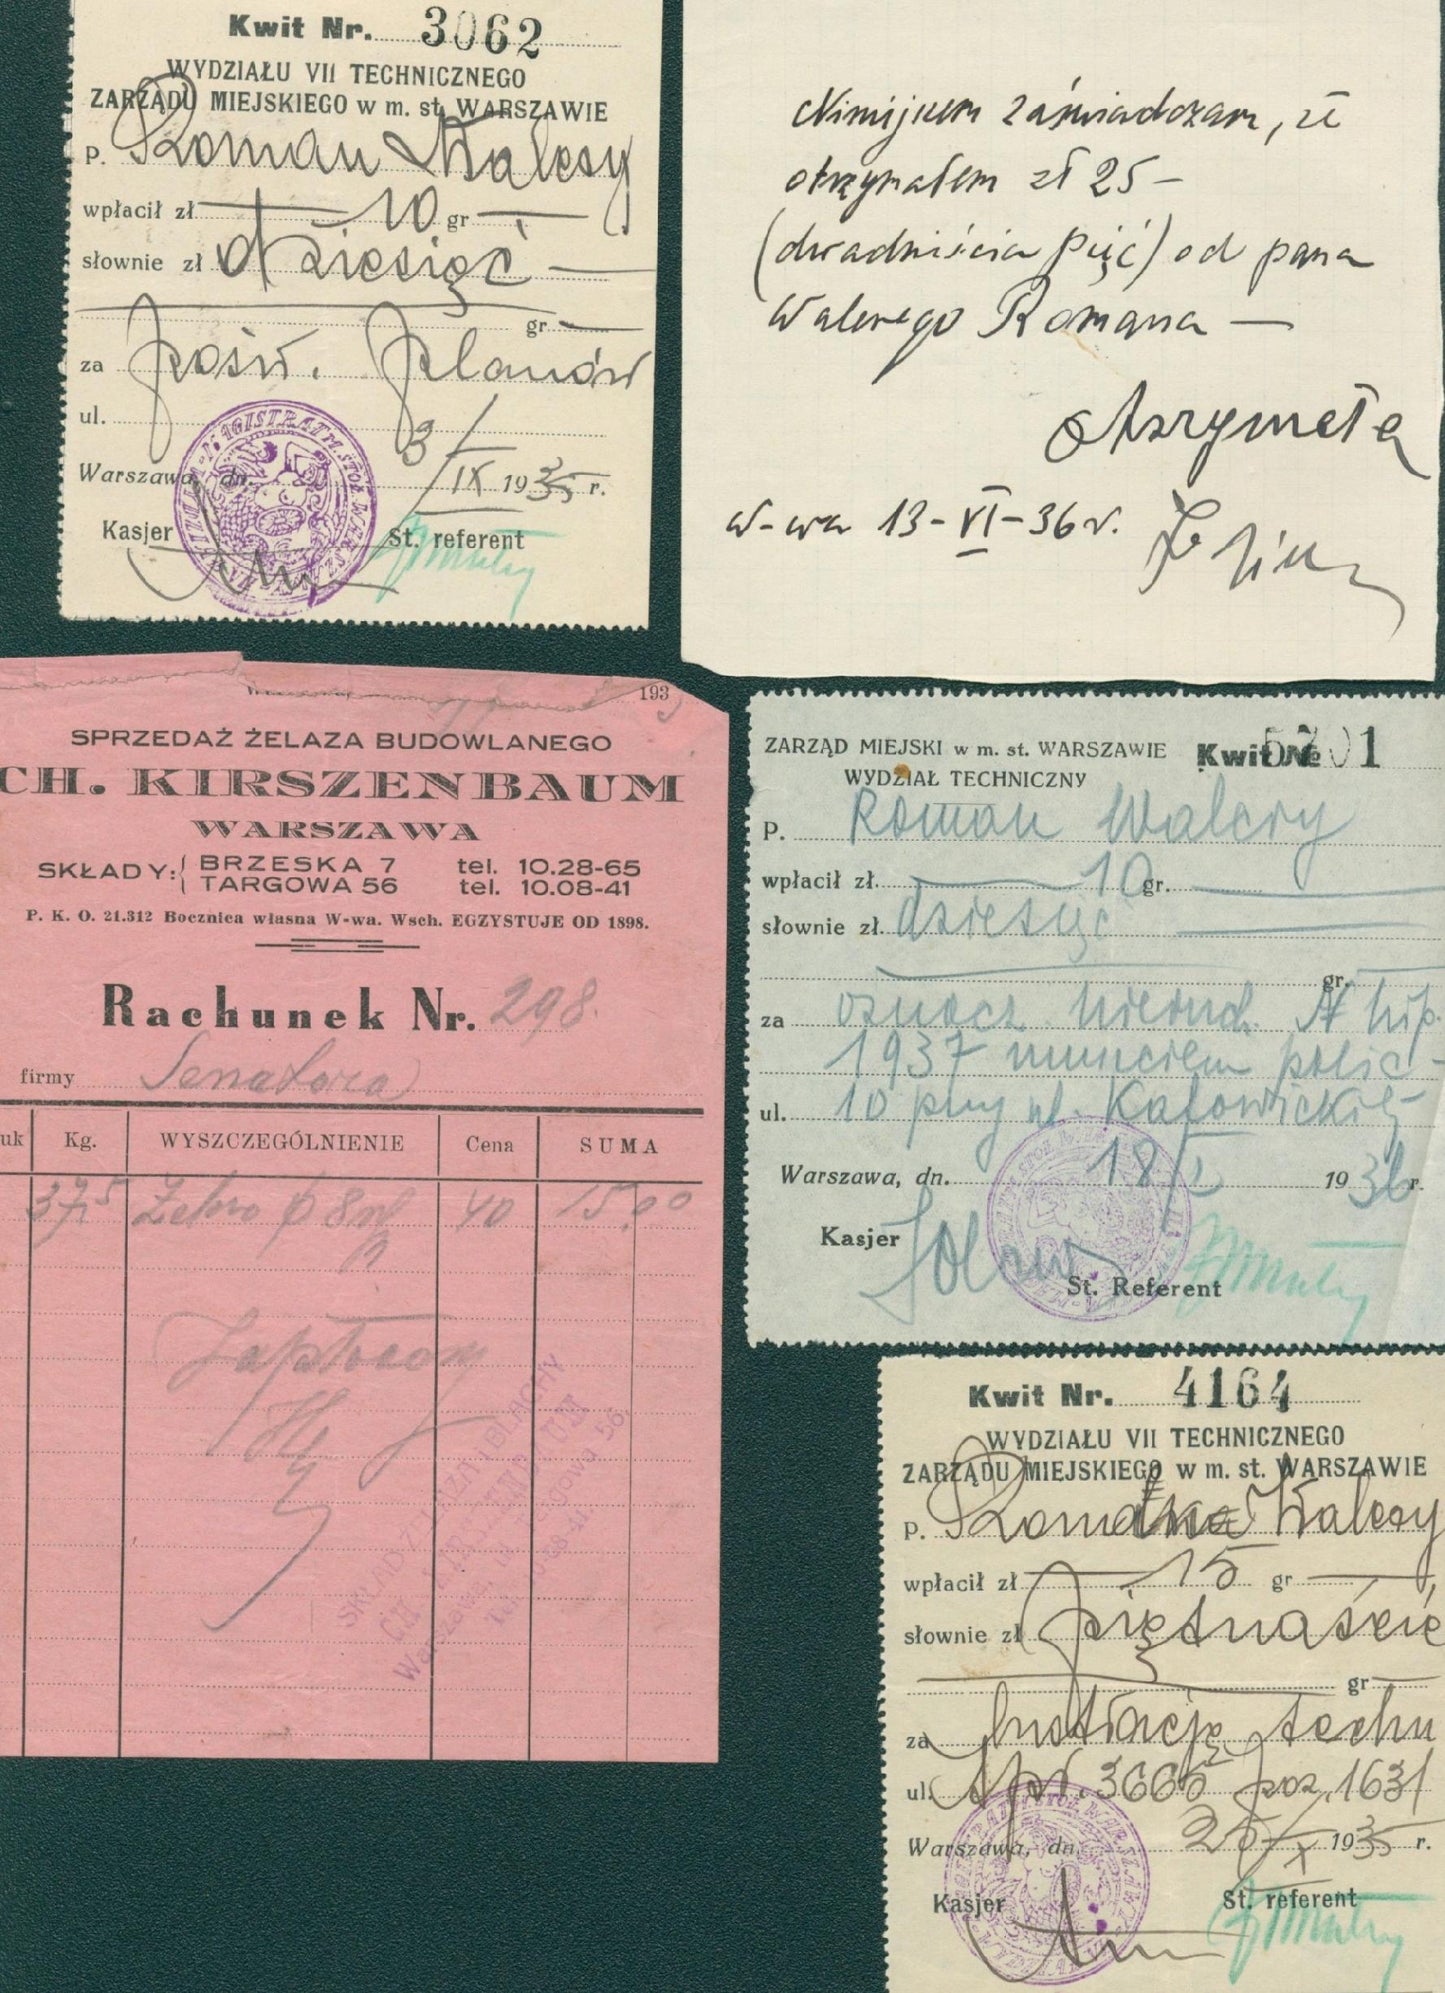 Kwit Nr. 3062
WYDZIAŁU VII TECHNICZNEGO
ZARZĄDU MIEJSKIEGO w m. st. WARSZAWIE
P. Roman Walery
wpłacił zł 10 gr
słownie zł dziesięć
gr
za pośw. planów
ul.
Warszawa, dn. 3/IX 1935 r.
Kasjer St. referent
Niniejszem zaświadczam, że
otrzymałem zł 25 —
(dwadzieścia pięć) od pana
Walerego Romana —
otrzymała
W-wa 13-VI-36 r.
193
SPRZEDAŻ ŻELAZA BUDOWLANEGO
CH. KIRSZENBAUM
WARSZAWA
SKŁADY: BRZESKA 7 tel. 10.28-65
TARGOWA 56 tel. 10.08-41
P. K. O. 21.312 Bocznica własna W-wa. Wsch. EGZYSTUJE OD 1898.
Rachunek Nr. 298.
firmy Senatora
uk Kg. WYSZCZEGÓLNIENIE Cena SUMA
37,5 40 15,00
ZARZĄD MIEJSKI w m. st. WARSZAWIE Kwit № 5701
WYDZIAŁ TECHNICZNY
P. Roman Walery
wpłacił zł. 10 gr.
słownie zł. dziesięć
gr.
za oznacz. nieruch. N hip.
1937 numerem polic-
ul. 10 przy ul. Katowickiej
Warszawa, dn. 18/I 1936 r.
Kasjer
St. Referent
Kwit Nr. 4164
WYDZIAŁU VII TECHNICZNEGO
ZARZĄDU MIEJSKIEGO w m. st. WARSZAWIE
P. Roman Walery
wpłacił zł 15 gr
słownie zł piętnaście
gr
za lustrację techn
ul. spr. 3665 poz. 1631
Warszawa, dn. 25/X 1935 r.
Kasjer St. referent